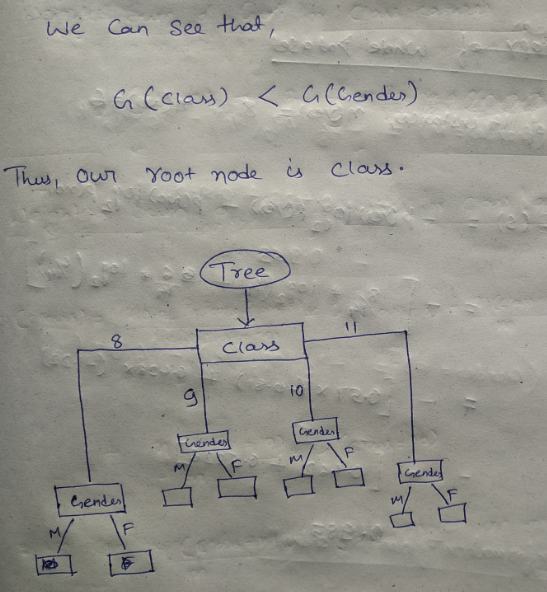 We Can See that,
G(class) < G(Gender)
Thus, our root node is class.
Tree
8
Class
11
9
10
Gender
Gender
M
F
M
F
Gender
Gender
M
F
M
F